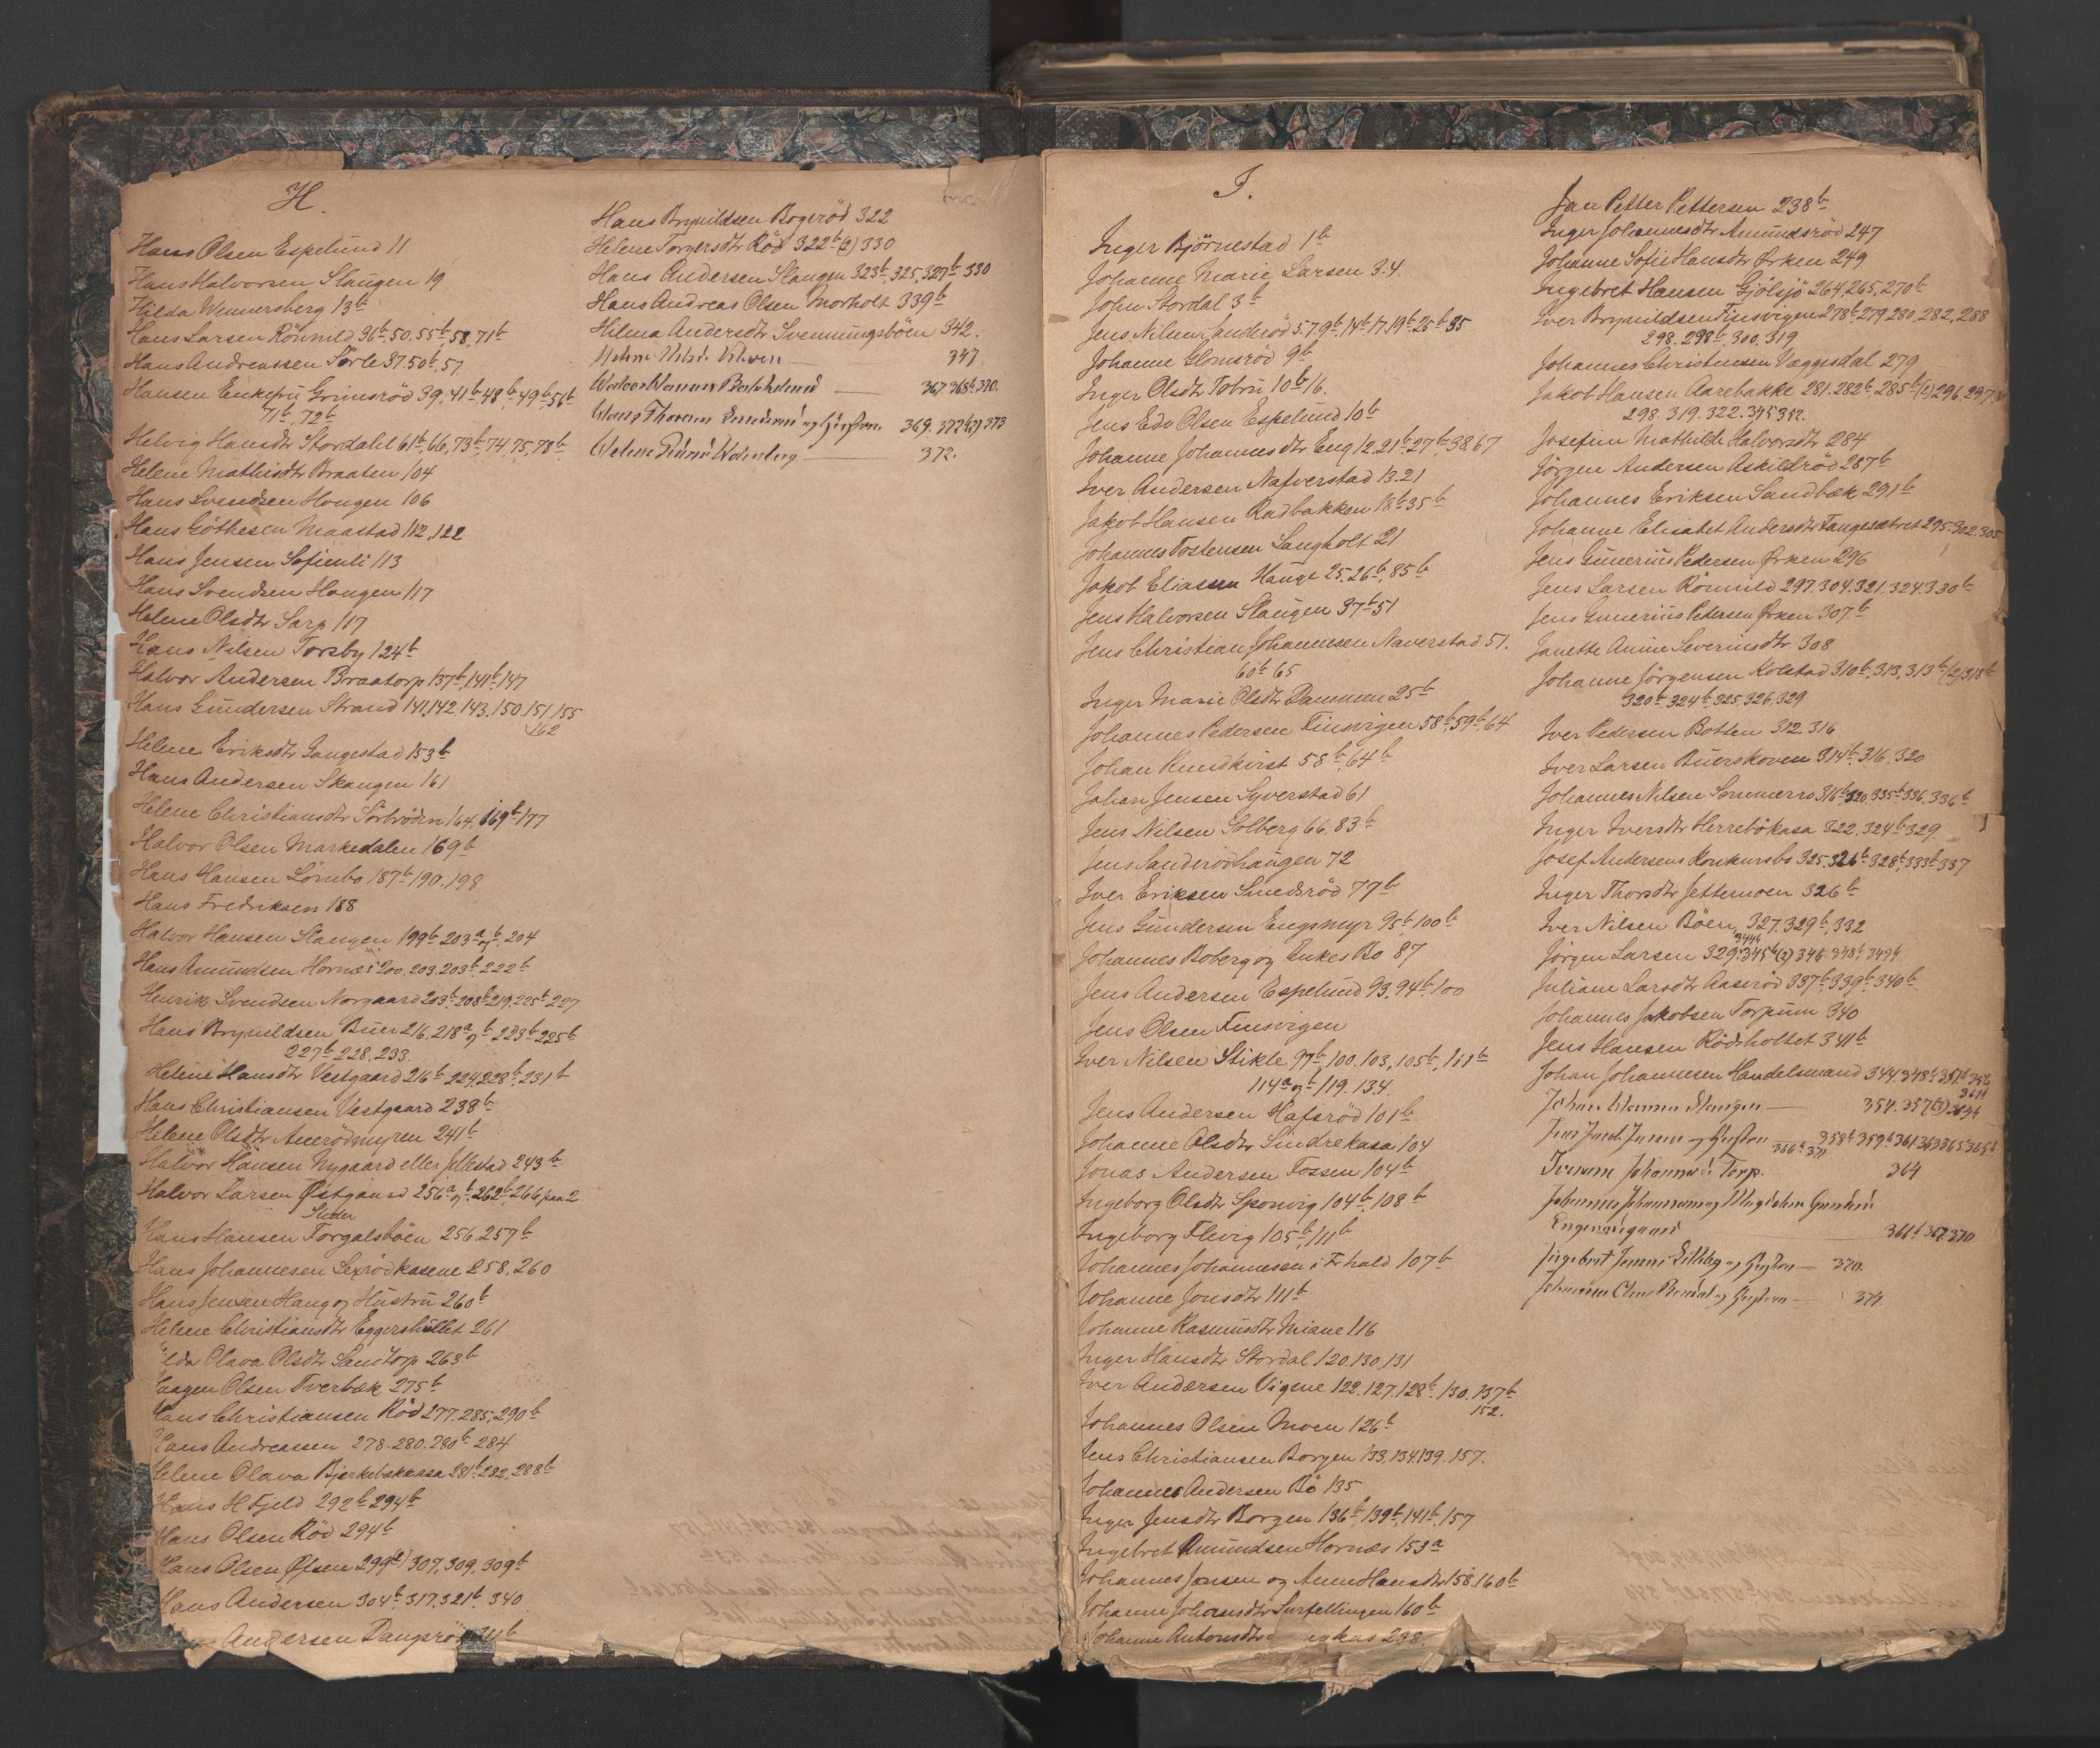 H.
Hans Olsen Espelund 11
Hans Halvorsen Slaugen 19
Hilda Wennersberg 13b
Hans Larsen Römnild 36b, 50, 55b, 58, 71b
Hans Andreassen Törle 37 50b, 57
Hansen Enkefru Grimsröd 39, 41b 48b, 49b 56b
71b, 72b
Helvig Hansdtr Stordahl 61b, 66, 73b 74, 75, 78b
Helene Mathisdtr Braaten 104
Hans Svendsen Hougen 106
Hans Göthesen Maastad 112, 122
Hans Jensen Sofienli 113
Hans Svendsen Hougen 117
Helene Olsdtr Sarp 117
Hans Nilsen Torsby 124b
Halvor Andersen Braatorp 137b, 141b, 147
Hans Gundersen Strand 141, 142, 143, 150, 151, 155
162
Helene Eriksdtr Gangestad 153b
Hans Andersen Skaugen 161
Helene Christiansdtr Sörbröden 164, 169b 177
Halvor Olsen Markedalen 169b
Hans Hansen Lörnbo 187b 190. 198
Hans Fredriksen 188
Halvor Hansen Slangen 199b 203a og b, 204
Hans Amundsen Hornæs 200, 203, 203b, 222b
Henrik Svendsen Norgaard 203b, 208b 219, 225b 227
Hans Brynildsen Buer 216, 218a og b 223b 225b
227b 228, 233.
Helene Hansdtr Vestgaard 216b 224, 228b, 231b
Hans Christiansen Vestgaard 238b
Helene Olsdtr Aserödmyren 241b
Halvor Hansen Nygaard eller Jellestad 243b
Halvor Larsen Östgaard 256a og b, 262b, 266 paa 2
Sider
Hans Hansen Torgalsböen 256. 257b
Hans Johannesen Lexrödkasene 258, 260
Hans Jensen Haug og Hustru 260b
Helene Christiansdtr Eggershullet 261
lda Olava Olsdtr Samtorp 263b
Haagen Olsen Tverbæk 275b
Hans Christiansen Röd 277, 285, 290b
Hans Andreassen 278. 280. 280b 284
Helene Olava Bjerkebakkasa 281b, 282, 288b
Hans H Fjeld 292b 294b
Hans Olsen Röd 294b
Hans Olsen Øfsen 299b 307, 309, 309b
Hans Andersen 304b, 317, 321b, 340
Andersen
Hans Brynildsen Bogeröd 322
Helene Torgersdtr Röd 322b (2) 330
Hans Andersen Slangen 323b, 325, 327b 330
Hans Andreas Olsen Morholt 339b
Hilma Andersdtr Svenningsböen 342.
347
367. 368b 370.
369. 372b (2) 373
372.
I.
Inger Björnestad 1b
Johanne Marie Larsen 3. 4.
John Stordal 3b
Jens Nilsen Sanderöd 5. 7. 9b, 14b 17, 19b 25b 35
Johanne Glomsröd 9b
Inger Olsdtr Tobru 10b 16.
Jens Edv Olsen Espelund 10b
Johanne Johannesdtr Eng 12. 21b 27b, 38, 67
Iver Andersen Nafverstad 13. 21
Jakob Hansen Radbakken 18b 35b
Johannes Tostensen Langholt 21
Jakob Eliassen Hauge 25. 26b, 85b
Jens Halvorsen Slaugen 37b 51
Jens Christian Johannesen Naverstad 51.
60b 65
Inger Marie Olsdtr Dammen 25b
Johannes Pedersen Finsvigen 58b, 59b, 64
Johan Kundkvist 58b, 64b
Johan Jensen Syverstad 61
Jens Nilsen Solberg 66, 83b
Jens Sanderödhaugen 72
Iver Eriksen Smedsröd 77b
Jens Gundersen Engsmyr 95b 100b
Johannes Boberg og Enkes Bo 87
Jens Andersen Espelund 93, 94b, 100
Jens Olsen Finsvigen
Iver Nilsen Stikle 97b, 100. 103, 105b, 111b
114a og b 119. 134.
Jens Andersen Hafsröd 101b
Johanne Olsdtr Sindrekasa 104
Jonas Andersen Fossen 104b
Ingeborg Olsdtr Sponvig 104b, 108b
Ingeborg Flevig 105b, 111b
Johannes Johannessen i Frhald 107b
Johanne Jonsdtr 111b
Johanne Rasmusdtr Misne 116
Inger Hansdtr Stordal 120. 130, 131
Iver Andersen Vigene 122. 127. 128b, 130. 137b
152.
Johannes Olsen Moen 126b
Jens Christiansen Borgen 133, 134, 139. 157.
Johannes Andersen Bö 135
Inger Jensdtr Borgen 136b, 139b, 141b, 157
Ingebret Amundsen Hornæs 153a
Johannes Jonsen og Anne Hansdtr 158. 160b
Johanne Johansdtr Surfellingen 160b
Johanne Antonsdtr 238.
Jan Petter Pettersen 238b
Inger Johannesdtr Amundsröd 247
Johanne Sofie Hansdtr Ørken 249
Ingebret Hansen Gjölsjö 264, 265, 270b
Iver Brynildsen Finsvigen 278b, 279, 280, 282, 288
298, 298b, 300, 319
Johannes Christensen Væggesdal 279
Jakob Hansen Aarebakke 281. 282b, 285b (2) 296, 297
298. 319. 322. 345
Josefine Mathilde Halvorsdtr 284
Jörgen Andersen Askildröd 287b
Johannes Eriksen Sandbæk 291b
Johanne Elisabet Andersdtr Tangesætret 295. 302. 305
Jens Gunerius Pedersen Ørken 296
Jens Larsen Römnild 297. 304. 321. 324. 330b
Jens Gunerius Petersen Ørken 307b
Janette Annie Severinsdtr 308
Johanne Jörgensen Kolstad 310b, 313, 313b (2) 318b
320b 324b 325. 326. 329
Iver Pedersen Botten 312. 316
Iver Larsen Buerskoven 314b, 316. 320
Johannes Nilsen Sommerro 316b, 320, 335b 336, 336b
Inger Iversdtr Herrebökasa 322, 324b 329
Josef Andersens Konkursbo 325, 326b 328b, 333b 337
Inger Thorsdtr Jettemoen 326b
Iver Nilsen Böen, 327. 329b, 332
344b
Jörgen Larsen 329. 345b (3) 346 348b 349b
Juliane Larsdtr Aaseröd 337b 339b 340b
Johannes Jakobsen Torpum 340
Jens Hansen Rödsholtet 341b
Johan Johannesen Handelsmand 344. 348b
354. 357 (3)
Torp. 364
Engenesgaard
370
374